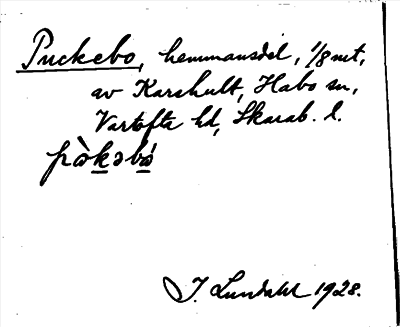 Puckebo, hemmansdel, 1/8 mt,
av Karshult, Habo sn,
Vartofta hd, Skarab. l.
pàkəbó
J. Lundahl 1928.